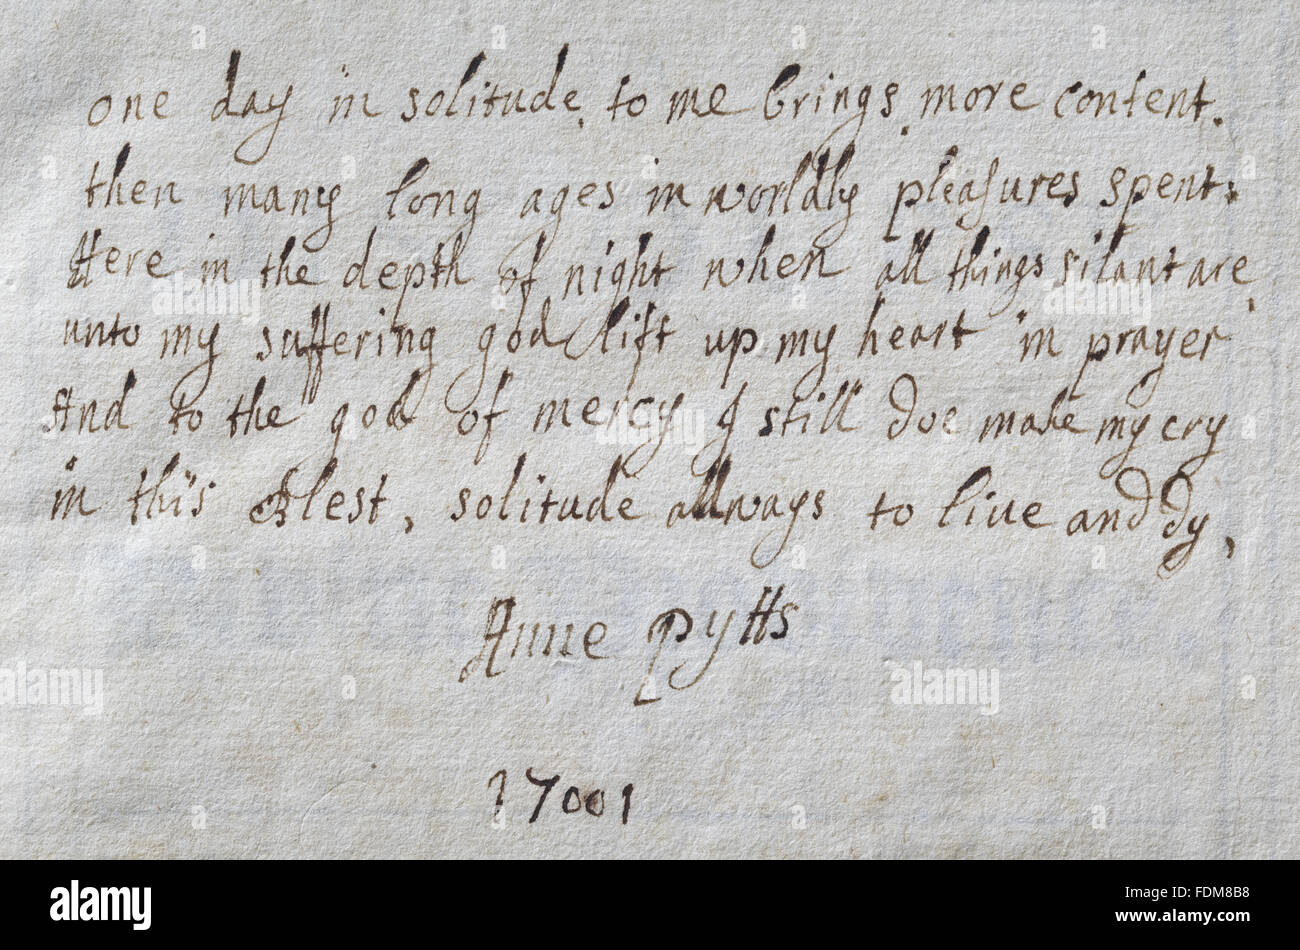 one day in solitude, to me brings, more content.
then many long ages in worldly pleasures spent:
Here in the depth of night when all things silant are,
unto my suffering god I lift up my heart in prayer
And to the god of mercy I still doe make my cry
in this Blest, solitude allways to live and dy,
Anne Pytts
17001
alamy stock photo
FDM8B8
www.alamy.com